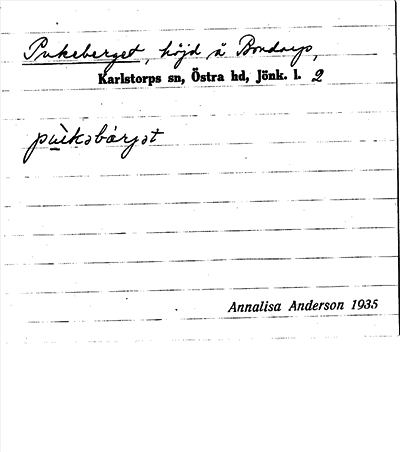 Pukeberget, höjd å Bondarp,
Karlstorps sn, Östra hd, Jönk. l. 2
pùkəbárjət
Annalisa Anderson 1935